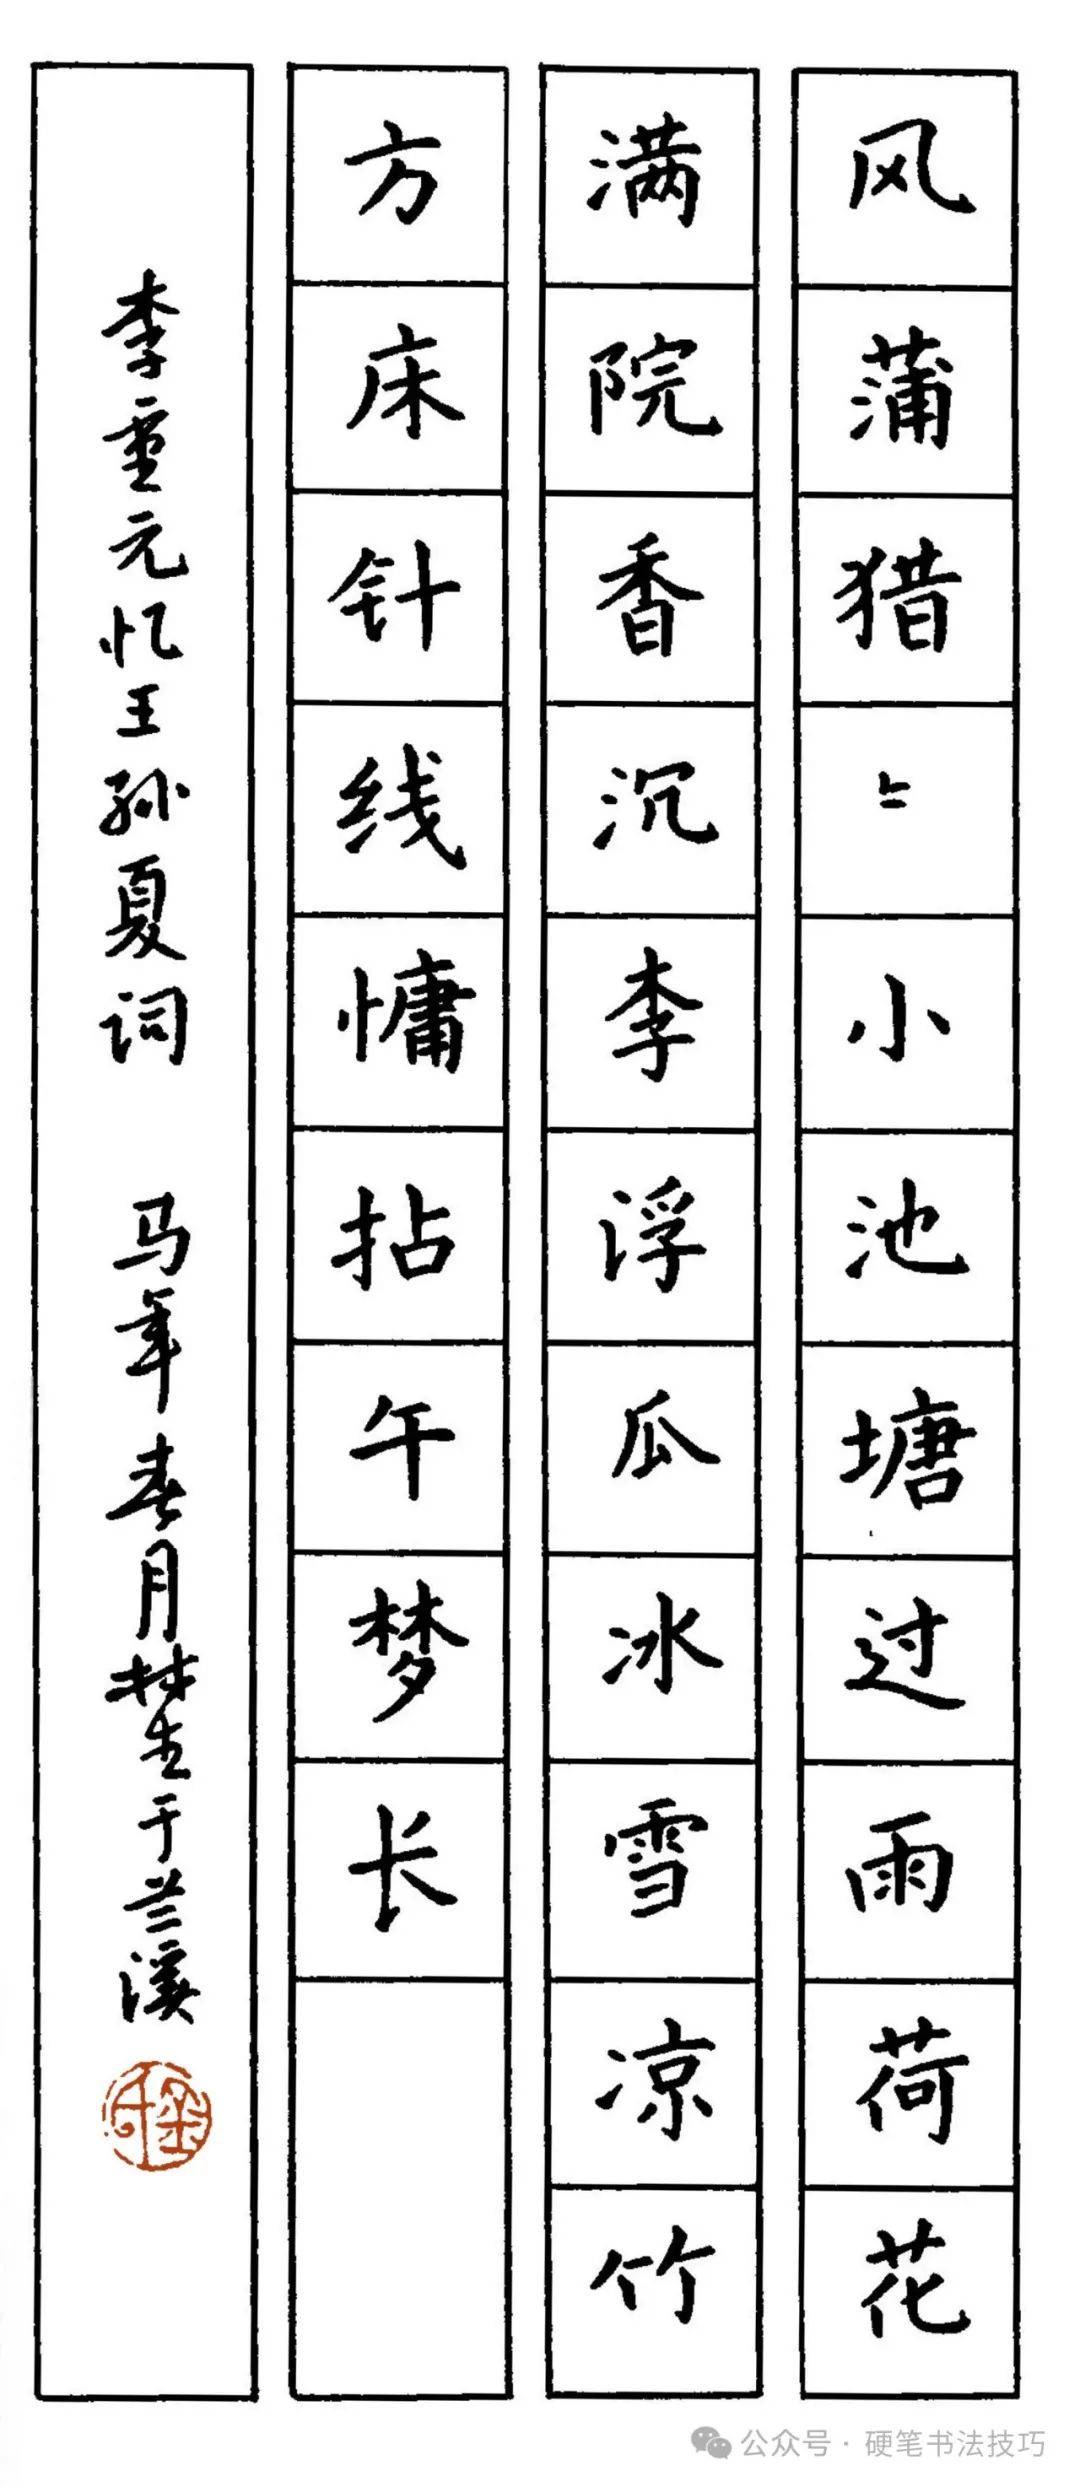 风蒲猎〻小池塘过雨荷花
满院香沉李浮瓜冰雪凉竹
方床针线慵拈午梦长
李重元忆王孙夏词 马年春月楚生于兰溪
公众号·硬笔书法技巧